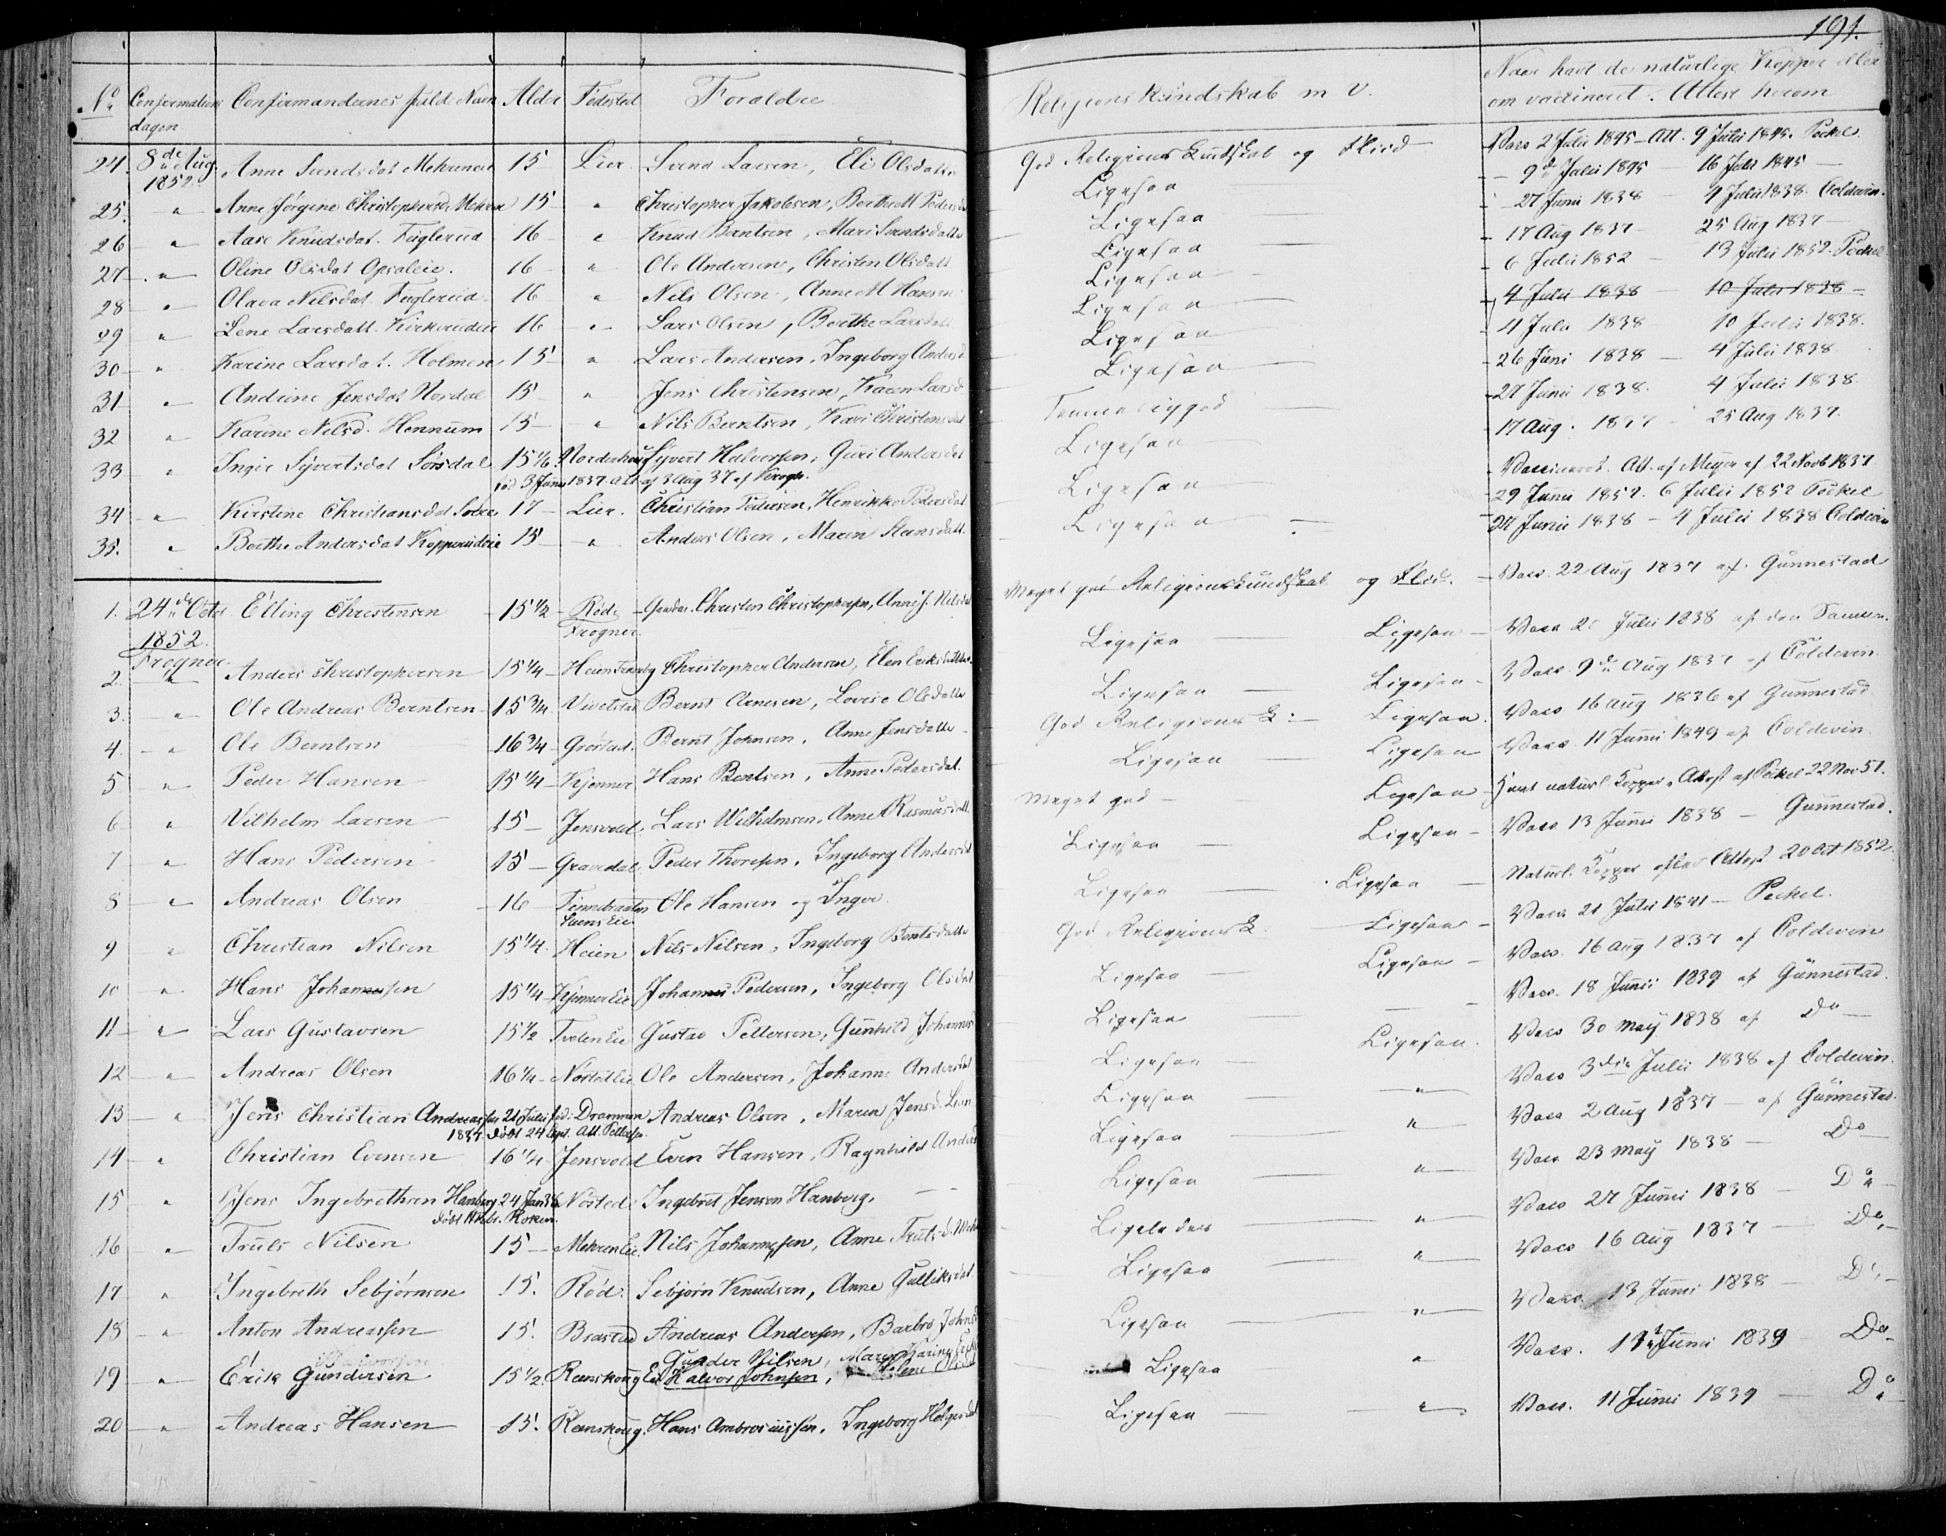 191.
No Confirmations dagen Confirmandernes fuld Navn Alder Fødested Foraldre Religions kundskab m v. Naar havt de naturlige Kopper eller om vaccineret. Attest herom
24. 8de Aug. 1852. Anne Svendsdat Mehreneie 15 Lier Svend Larsen, Eli Olsdatter God Religions Kundskab og Flied Vacc 2 Julii 1845 Att. 9 Julii 1845. Peckel
25. " Anne Jørgine Christophersd. Mehren 15 " Christopher Jakobsen, Berthe M Pedersd Ligesaa 9d Julii 1845 16 Julii 1845
26 " Aase Knudsdat. Fuglerud 16 " Knud Berntsen, Mari Svendsdatter Ligesaa 27 Junii 1838 4 Julii 1838. Coldevin.
27 " Oline Olsdat Opsaleie. 16 " Ole Andersen, Christen Olsdatt Ligesaa 17 Aug 1837 25 Aug 1837
28 " Olava Nilsdat. Fuglerud 16 " Nils Olsen, Anne M Hansen Ligesaa 6 Julii 1852 13 Julii 1852. Peckel
29 " Lene Larsdatt. Kirkerudeie 16 " Lars Olsen, Berthe Larsdatt Ligesaa 4 Julii 1838 10 Julii 1838
11 Julii 1838 10 Julii 1838.
30 " Karine Larsdat. Holmen 15 " Lars Andersen, Ingeborg Andersd Ligesaa 26 Juni 1838 4 Julii 1838
31 " Andrine Jensdat Nordal 15 " Jens Christensen, Karen Larsd Ligesaa 27 Junii 1838. 4 Julii 1838
32 " Karine Nilsd. Hennum 15 " Nils Berntsen, Kari Christensdat Temmelig god 17 Aug. 1837 25 Aug 1837.
33 " Ingir Syvertsdat Sørsdal 15 1/6 Norderhoug Syvert Halvorsen, Guri Andersdat Ligesaa Vaccineret. Att. af Meyer af 22 Novb 1837
fød 3 Juni 1837 att af 3 Aug 37 af Krogh.
34 " Kirstine Christiansdat 17 Lier. Christian Pedersen, Henrikke Pedersdat Ligesaa 29 Junii 1852. 6 Julii 1852 Peckel
35. " Berthe Andersdat Kopperudeie 15 " Anders Olsen, Maren Steensdatt. Ligesaa 27 Junii 1838 4 Julii 1838 Coldevin
1. 24de Octr 1852. Frogner Elling Christensen 15 1/2 Rød: Frogner Gaardm. Christen Christophersen, Anne J. Nilsdat Meget god Religionskundskab og Flid. Vacc. 22 Aug 1837 af. Gunnestad
2. " Anders Christophersen 15 1/4 Heien Christopher Andersen, Elen Eriksdatter Ligesaa Ligesaa Vacc 2 Julii 1838 af den Samme.
3. " Ole Andreas Berntsen 15 3/4 Vivelstad Bernt Arnesen, Lovise Olsdatter Ligesaa Ligesaa Vacc. 9de Aug 1837 af Coldevin
4. " Ole Berntsen 16 3/4 Grøstad. Bernt Johnsen, Anne Jensdatter God Religions K: Ligesaa Vacc 16 Aug 1836 af Gunnestad
5 " Peder Hansen 15 1/4 Kjenner Hans Bentsen, Anne Pedersdat. Ligesaa Ligesaa Vacc 11 Junii 1849 af Coldevin.
6 " Vilhelm Larsen 15 Jensvold. Lars Wilhelmsen, Anne Rasmusdatt. Meget god Ligesaa Havt naturl. Kopper, Attest af Peckel 22 Nov 51.
7 " Hans Pedersen 15 Graavdal Peder Thoresen, Ingeborg Andersdat Ligesaa Ligesaa Vacc 13 Junii 1838 Gunnestad.
8 " Andreas Olsen 16 Ole Hansen og Inger Ligesaa Ligesaa Naturl. Kopper efter Attest 20 Oct 1852
9 " Christian Nilsen 15 1/4. Heien Nils Nilsen, Ingeborg Berntsdatter God Religions K. Ligesaa Vacc 21 Julii 1841 Peckel.
10 " Hans Johannesen 15 1/4 Kjenner Eie Johannes Pedersen, Ingeborg Olsdat Ligesaa Ligesaa Vacc. 16 Aug 1837 af Coldevin
11 " Lars Gustavsen 15 1/2 Tveten Eie Gustav Pettersen, Gunhild Johannes Ligesaa Vacc. 18 Junii 1839 af Gunnestad.
12 " Andreas Olsen 16 1/4 Nøsted Eie Ole Andersen, Johanne Andersdat Ligesaa Ligesaa. Vacc 30 May 1838 af Do
13 " Jens Christian Andreassen 21 Julii fød. Drammen Andreas Olsen, Maren Jensd. Ligesaa " Vacc 3die Julii 1838 af Coldevin.
1837 døbt 24 Sept. Att. Pettersen.
14 " Christian Evensen 16 1/4 Jensvold Even Hansen, Ragnhild Anders Ligesaa " Vacc 2 Aug 1837 af Gunnestad.
15 " Jens Ingebrethsen Hanberg 24 Jan 38 Nøsted Ingebret Jensen Hanberg. Ligesaa " Vacc 23 May 1838 Do
16 " Truls Nilsen 15 Mehren Eie. Nils Johannesen, Anne Trulsd. Ligeledes " Vacc 27 Junii 1838 Do
17 " Ingebreth Sebjørnsen 15. Rød. Sebjørn Knudsen, Anne Gulliksdat Ligesaa " Vacc 16 Aug 1837 Do
18 " Anton Andreassen 15. Brastad Andreas Andersen, Barbro Johns Ligesaa " Vacc. 13 Junii 1838 Do
19 " Erik Gundersen 15 1/2. Reenskoug Eie Gunder Nilsen, Halvor Johnsen, Ligesaa " Vacc. Junii 1839 Do
20 " Andreas Hansen 15. Reenskoug. Hans Ambrosiussen, Ingeborg Holgersdat Ligesaa " Vacc. 11 Junii 1839 Do